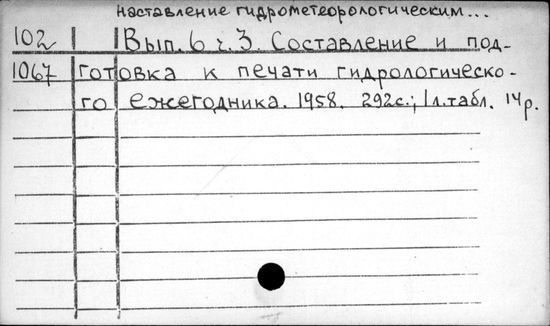 наставление гидрометеорологическим...
102 Вып. 6 ч. 3. Составление и под-
1067 готовка к печати гидрологическо-
го ежегодника. 1958. 292с.; 1л.табл. 14р.